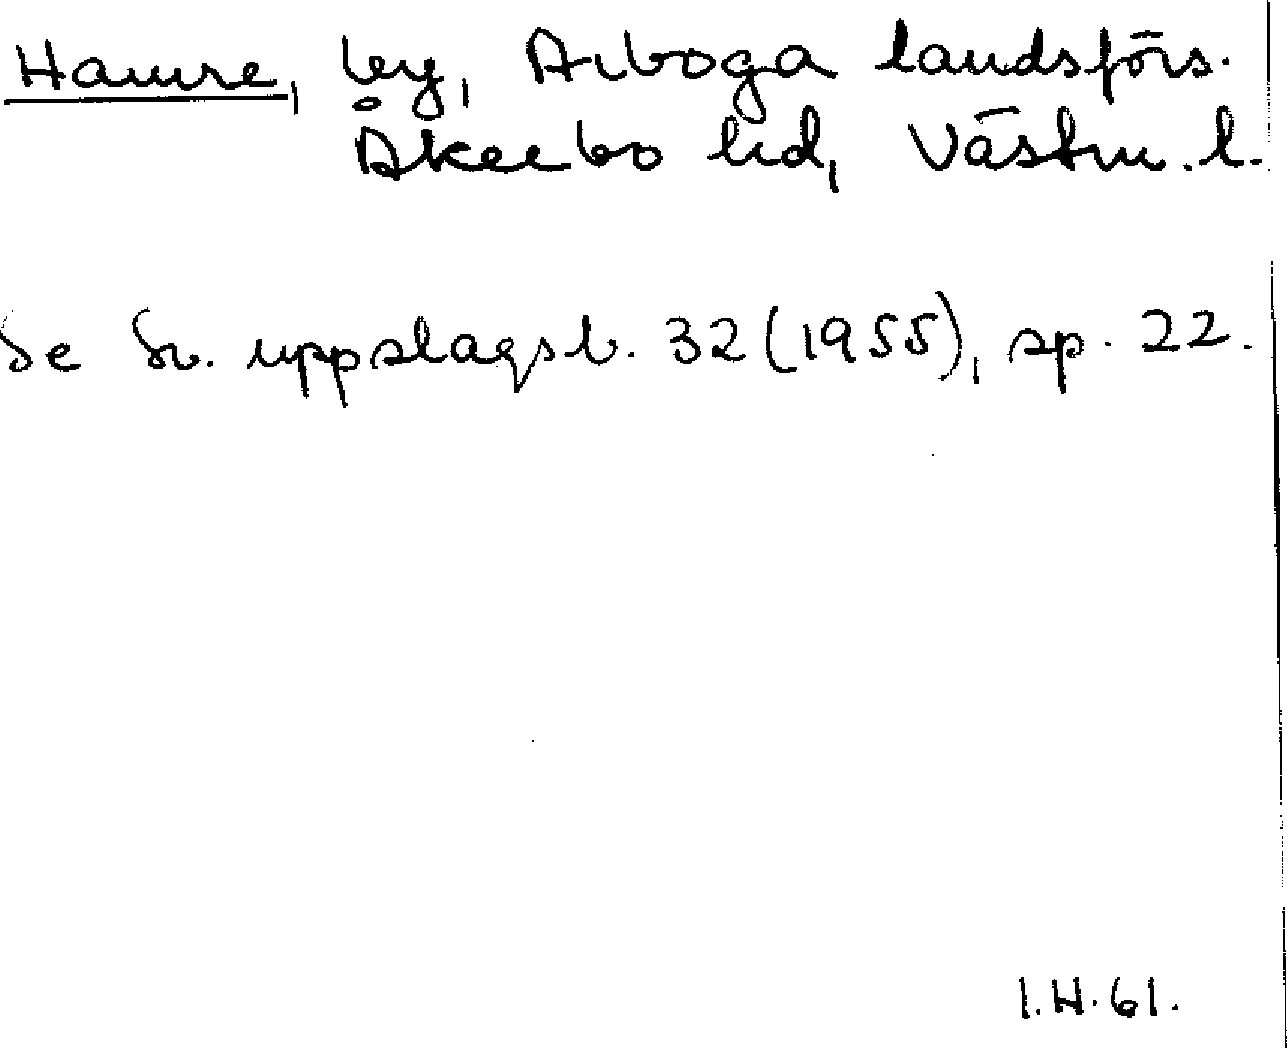 Hamre, by, Arboga landsförs.
Åkerbo hd, Västm. l.
Se Sv. uppslagsb. 32 (1955), sp. 22.
I.H. 61.